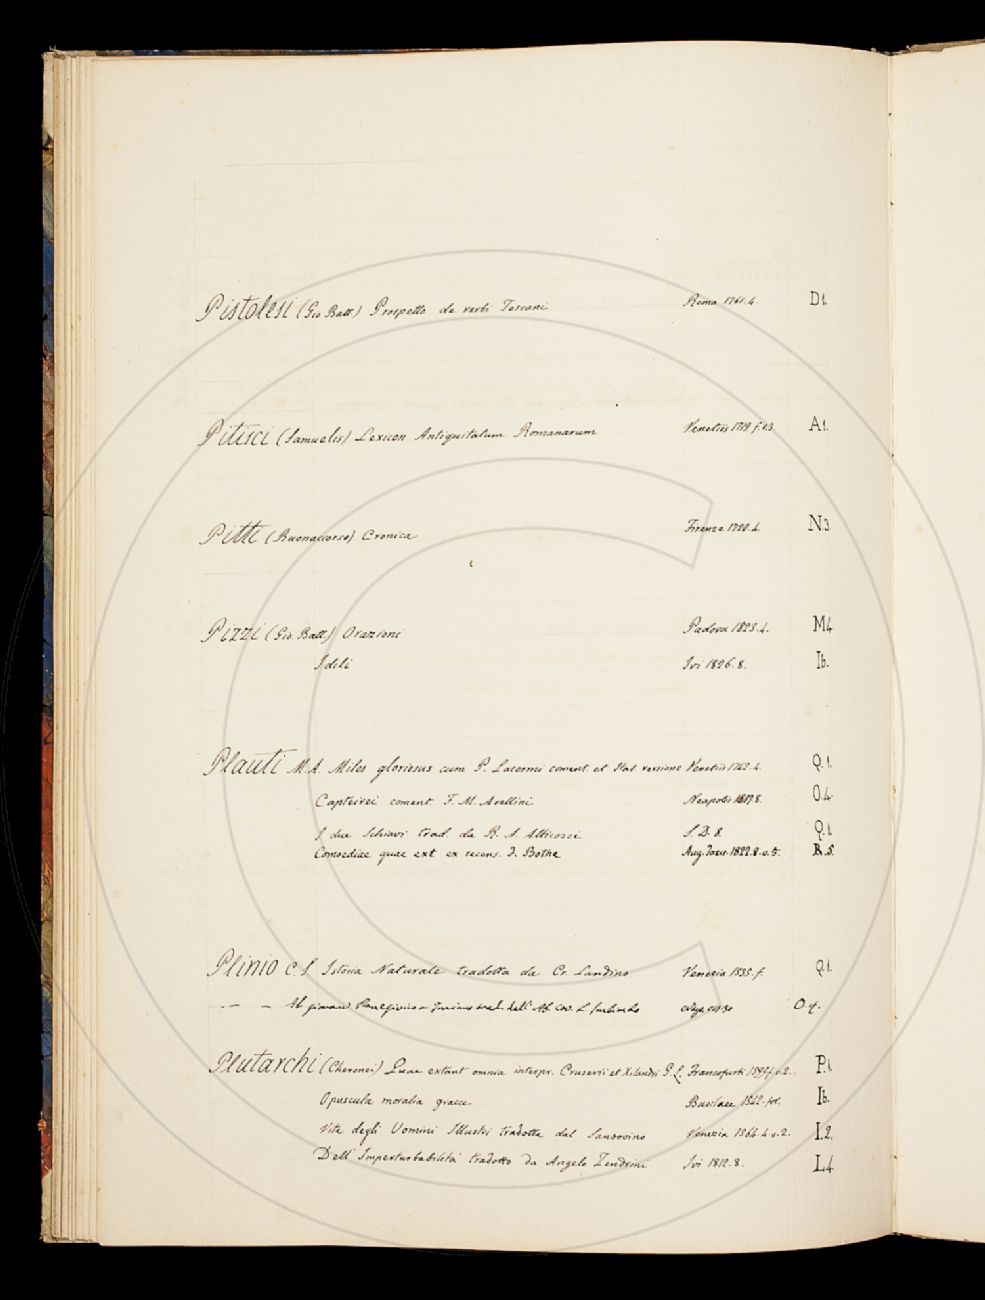 Pistolesi (Gio Batt.) Prospetto de verbi Toscani Roma 1761. 4. D1.
Pitisci (Samuelis) Lexicon Antiquitatum Romanarum Venetiis 1719. f. v.3. A1.
Pitti (Buonaccorso) Cronica Firenze 1720. 4. N3.
Pizzi (Gio. Batt.) Orazioni Padova 1825. 4. M4.
Idili Ivi 1826. 8. Ib.
Plauti M. A. Miles gloriosus cum P. Lacermi coment. et Ital versione Venetiis 1742. 4. Q.1.
Capteivei coment. F. M. Avellini Neapolis 1817. 8. O.4.
I due Schiavi trad. da R. A. Alticozzi S. D. 8. Q.1.
Comoediae quae ext. ex recens. F. Bothe Aug. Taur. 1822. 8. v. 5. R.5.
Plinio C. S. Istoria Naturale tradotta da Cr. Landino Venezia 1535. f. Q1.
— — trad. dall' Ab. Cav. L. O 4.
Plutarchi (Cheronei) Quae extant omnia interpr. Cruserii et Xilandri G. L. Francofurti 1592. f. v. 2. P.1.
Opuscula moralia graece Basileae 1542. fol. Ib.
Vite degli Uomini Illustri tradotte dal Sansovino Venezia 1564. 4. v. 2. I.2.
Dell' Imperturbabilità tradotto da Angelo Zendrini Ivi 1812. 8. L4.